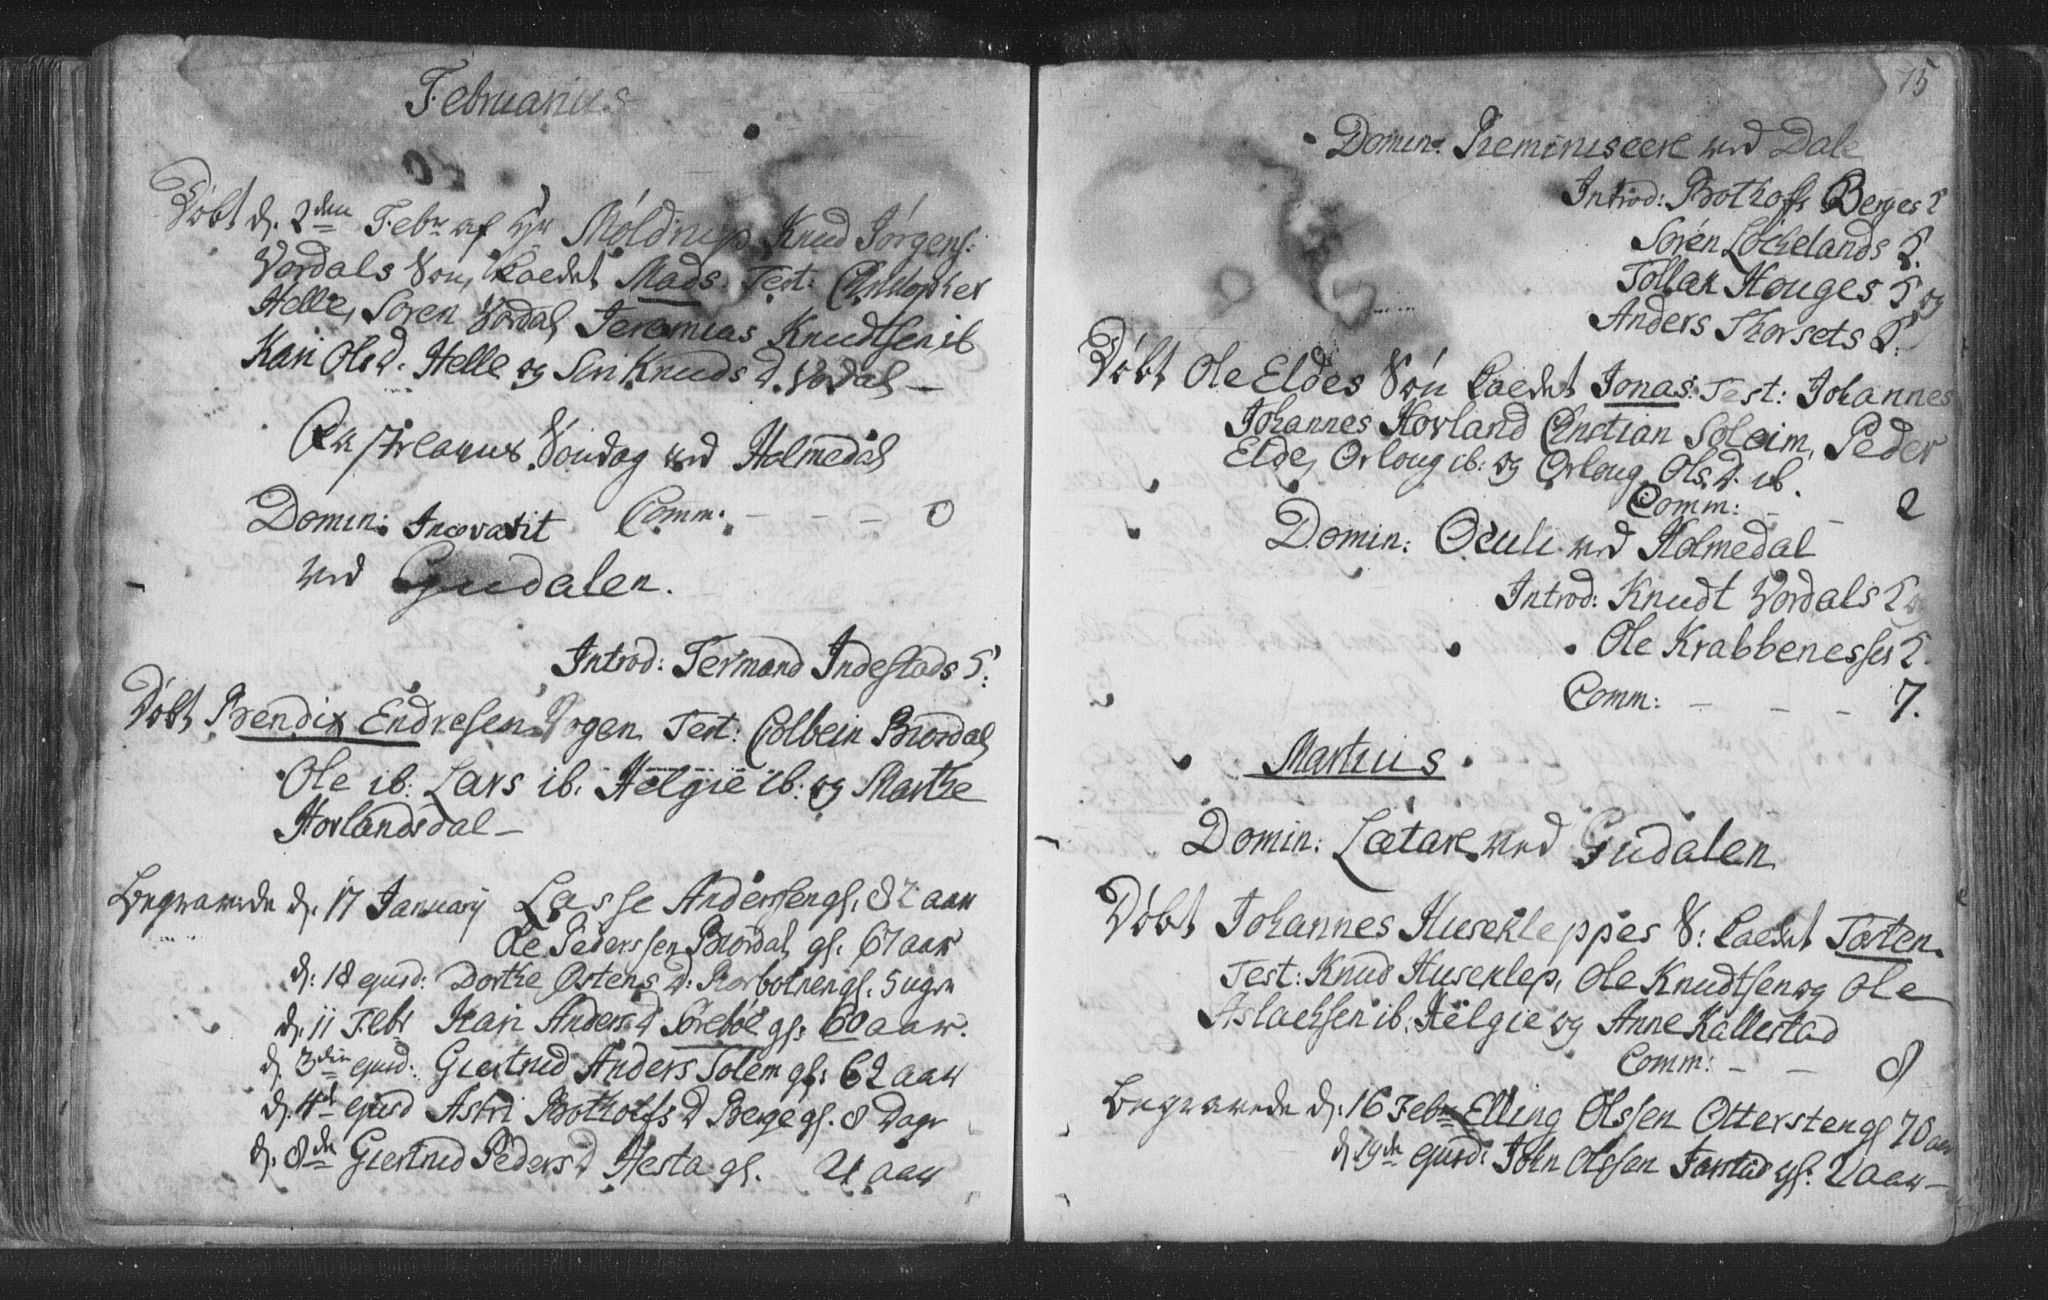 Februarius
Døbt d. 2den Febr af Hr Moldrup Knud Jørgens:
Vordals Søn, kaedet Mads. Test: Christopher
Helle, Søren Vordal, Jeremias Knudtsen ib
Kari Olsd. Helle og Siri Knuds D. Vordal —
Søndag ved Holmedal
Comm. - - - 0
Domin: Invocavit
ved Gudalen.
Introd: Termand Indestads H:
Døbt Bendix Endresen Test: Colbein Biordal
Ole ib: Lars ib. Helgie ib: og Marthe
Hovlandsdal —
Begravede d. 17 January Lasse Anderssen gl. 82 aar
Ole Pederssen Biordal gl. 67 aar
d. 18 ejusd: Dorthe Østens D: gl. 5 uger
d. 11 Febr Kari Anders D Sørebøe gl: 60 aar.
d. 3die ejusd: Giertrud Anders Solem gl: 62 aar
d. 4de ejusd Astri Botholfs D Berge gl. 8 Dage
d. 8de Giertrud Peders D Hesta gl. 21 aar
75
Domin: Reminiscere ved Dale
Introd: Botholfs Berges H
Søren Løchelands H.
Tollak Houges H og
Anders Thorsets H.
Døbt Ole Eldes Søn kaedet Jonas: Test: Johannes
Johannes Hovland Christian Soleim, Peder
Elde, Orloug ib: og Orloug Ols D. ib.
Comm: - - 2
Domin: Oculi ved Holmedal
Introd: Knudt Vordals H og
Ole Krabbenesses H.
Comm: - - - 7.
Martius
Domin: Lætare ved Gudalen
Døbt Johannes Husekleppes S: kaedet Torsten.
Test: Knud Huseklep, Ole Knudtsen og Ole
Aslachsen ib: Helgie og Anne Kallestad
Comm: - - 8
Begravede d. 16 Febr Elling Olssen Ottersten gl 70 aar
d. 19de ejusd: John Olssen gl: 2 aar —